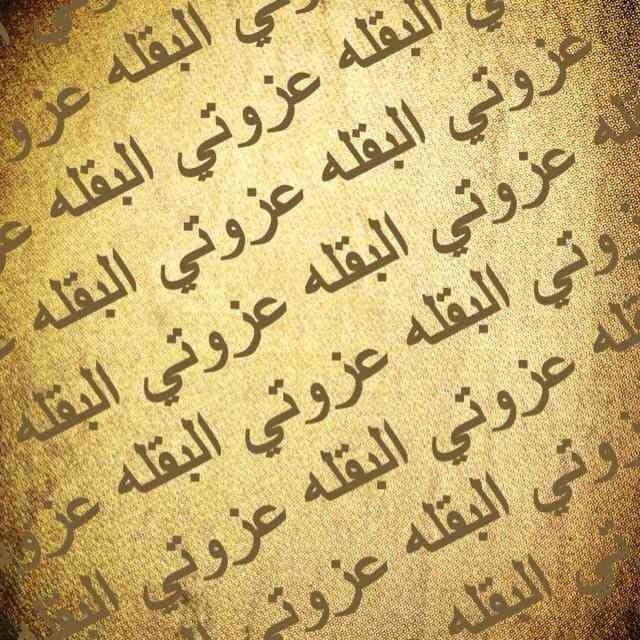 البقله عزو
البقله عزوتي البقله
عزوتي البقله عزوتي البقله
عزوتي البقله عزوتي البقله
وتي البقله عزوتي البقله عزو
عزوتي البقله عزوتي البقله
وتي البقله عزوتي
البقله